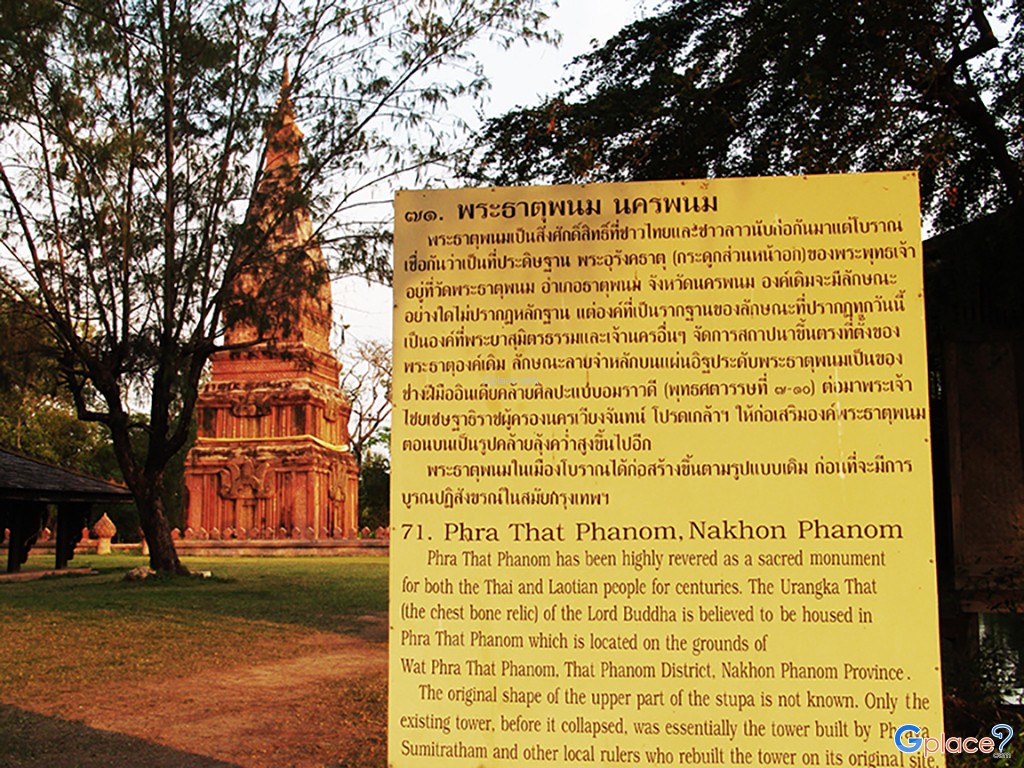 ๗๑. พระธาตุพนม นครพนม
พระธาตุพนมเป็นสิ่งศักดิ์สิทธิ์ที่ชาวไทยและชาวลาวนับถือกันมาแต่โบราณ
เชื่อกันว่าเป็นที่ประดิษฐาน พระอุรังคธาตุ (กระดูกส่วนหน้าอก)ของพระพุทธเจ้า
อยู่ที่วัดพระธาตุพนม อำเภอธาตุพนม จังหวัดนครพนม องค์เดิมจะมีลักษณะ
อย่างใดไม่ปรากฏหลักฐาน แต่องค์ที่เป็นรากฐานของลักษณะที่ปรากฏทุกวันนี้
เป็นองค์ที่พระยาสุมิตรธรรมและเจ้านครอื่นๆ จัดการสถาปนาขึ้นตรงที่ตั้งของ
พระธาตุองค์เดิม ลักษณะลายจำหลักบนแผ่นอิฐประดับพระธาตุพนมเป็นของ
ช่างฝีมืออินเดียคล้ายศิลปะแบบอมราวดี (พุทธศตวรรษที่ ๗-๑๐) ต่อมาพระเจ้า
ไชยเชษฐาธิราชผู้ครองนครเวียงจันทน์ โปรดเกล้าฯ ให้ก่อเสริมองค์พระธาตุพนม
ตอนบนเป็นรูปคล้ายลุ้งคว่ำสูงขึ้นไปอีก
พระธาตุพนมในเมืองโบราณได้ก่อสร้างขึ้นตามรูปแบบเดิม ก่อนที่จะมีการ
บูรณปฏิสังขรณ์ในสมัยกรุงเทพฯ
71. Phra That Phanom, Nakhon Phanom
Phra That Phanom has been highly revered as a sacred monument
for both the Thai and Laotian people for centuries. The Urangka That
(the chest bone relic) of the Lord Buddha is believed to be housed in
Phra That Phanom which is located on the grounds of
Wat Phra That Phanom, That Phanom District, Nakhon Phanom Province.
The original shape of the upper part of the stupa is not known. Only the
existing tower, before it collapsed, was essentially the tower built by
Sumitratham and other local rulers who rebuilt the tower on its original site.
Gplace?
.com